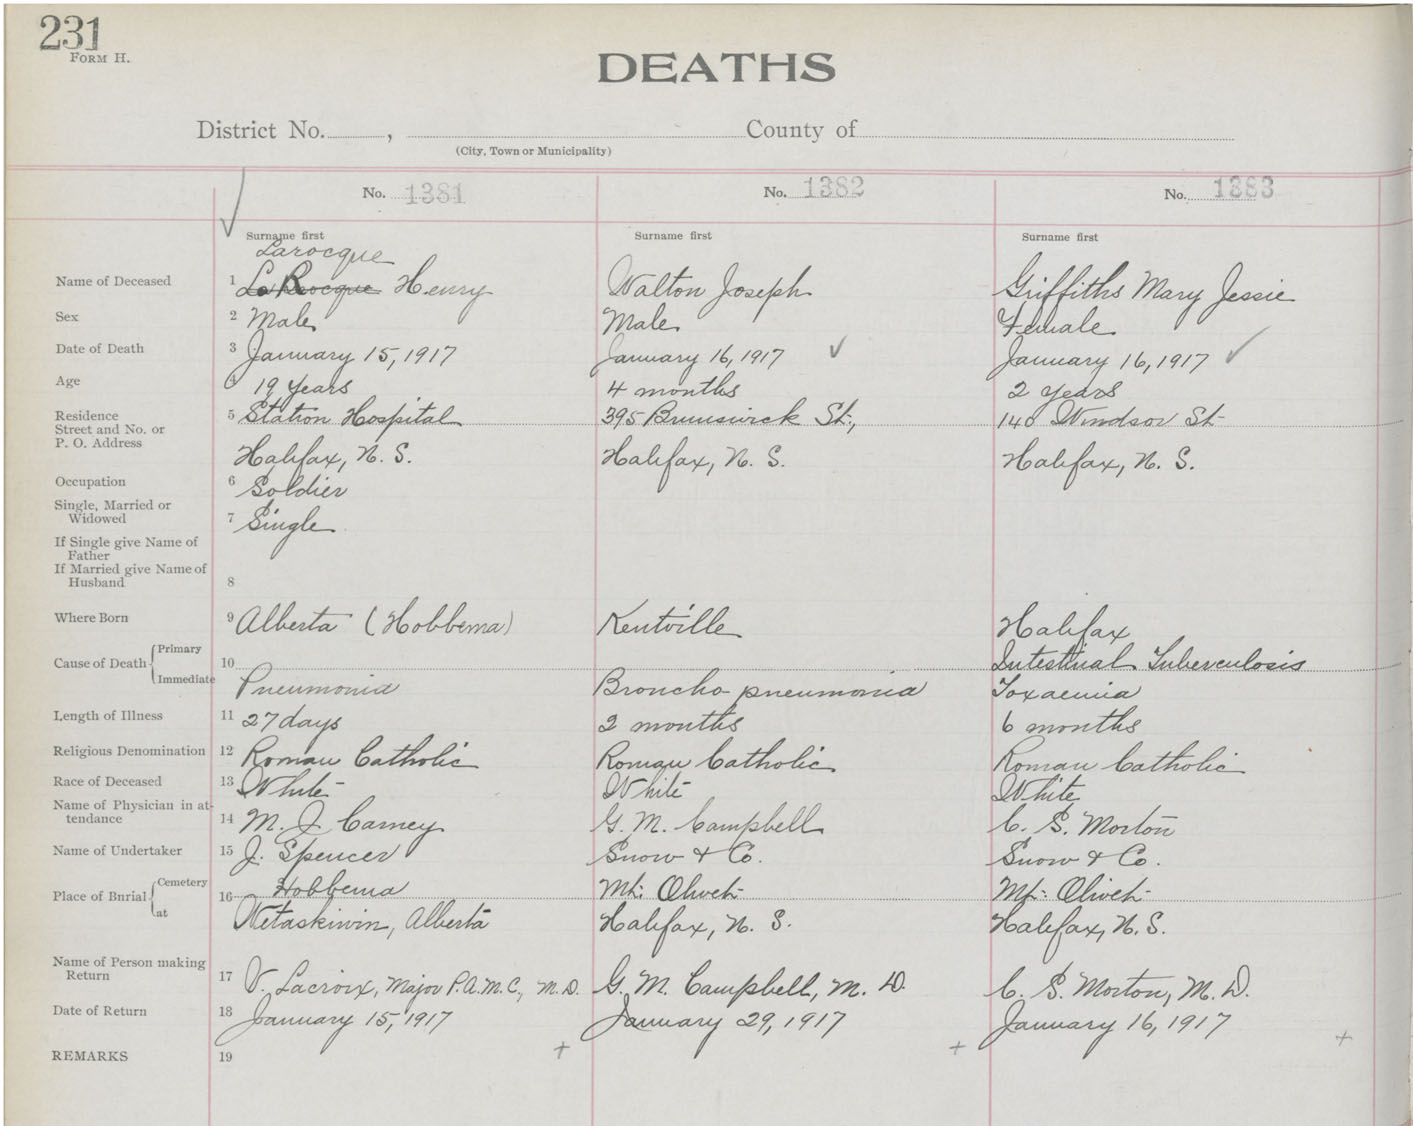 231
FORM H.
DEATHS
District No. , County of
(City, Town or Municipality)
No. 1381 No. 1382 No. 1383
Surname first Surname first Surname first
Larocque
Name of Deceased 1 La Rocque Henry Walton Joseph Griffiths Mary Jessie
Sex 2 Male Male Female
Date of Death 3 January 15, 1917 January 16, 1917 January 16, 1917
Age 4 19 years 4 months 2 years
Residence 5 Station Hospital 395 Brunswick St., 140 Windsor St
Street and No. or
P. O. Address Halifax, N. S. Halifax, N. S. Halifax, N. S.
Occupation 6 Soldier
Single, Married or
Widowed 7 Single
If Single give Name of
Father
If Married give Name of
Husband 8
Where Born 9 Alberta (Hobbema) Kentville Halifax
Cause of Death Primary 10 Intestinal Tuberculosis
Immediate Pneumonia Broncho-pneumonia Toxaemia
Length of Illness 11 27 days 2 months 6 months
Religious Denomination 12 Roman Catholic Roman Catholic Roman Catholic
Race of Deceased 13 White White White
Name of Physician in at-
tendance 14 M. J. Carney G. M. Campbell C. S. Morton
Name of Undertaker 15 J. Spencer Snow & Co. Snow & Co.
Place of Burial Cemetery 16 Hobbema Mt. Olivet Mt. Olivet
at Wetaskiwin, Alberta Halifax, N. S. Halifax, N. S.
Name of Person making
Return 17 V. Lacroix, Major P.A.M.C., M.D. G. M. Campbell, M. D. C. S. Morton, M. D.
Date of Return 18 January 15, 1917 January 29, 1917 January 16, 1917
REMARKS 19 + + +